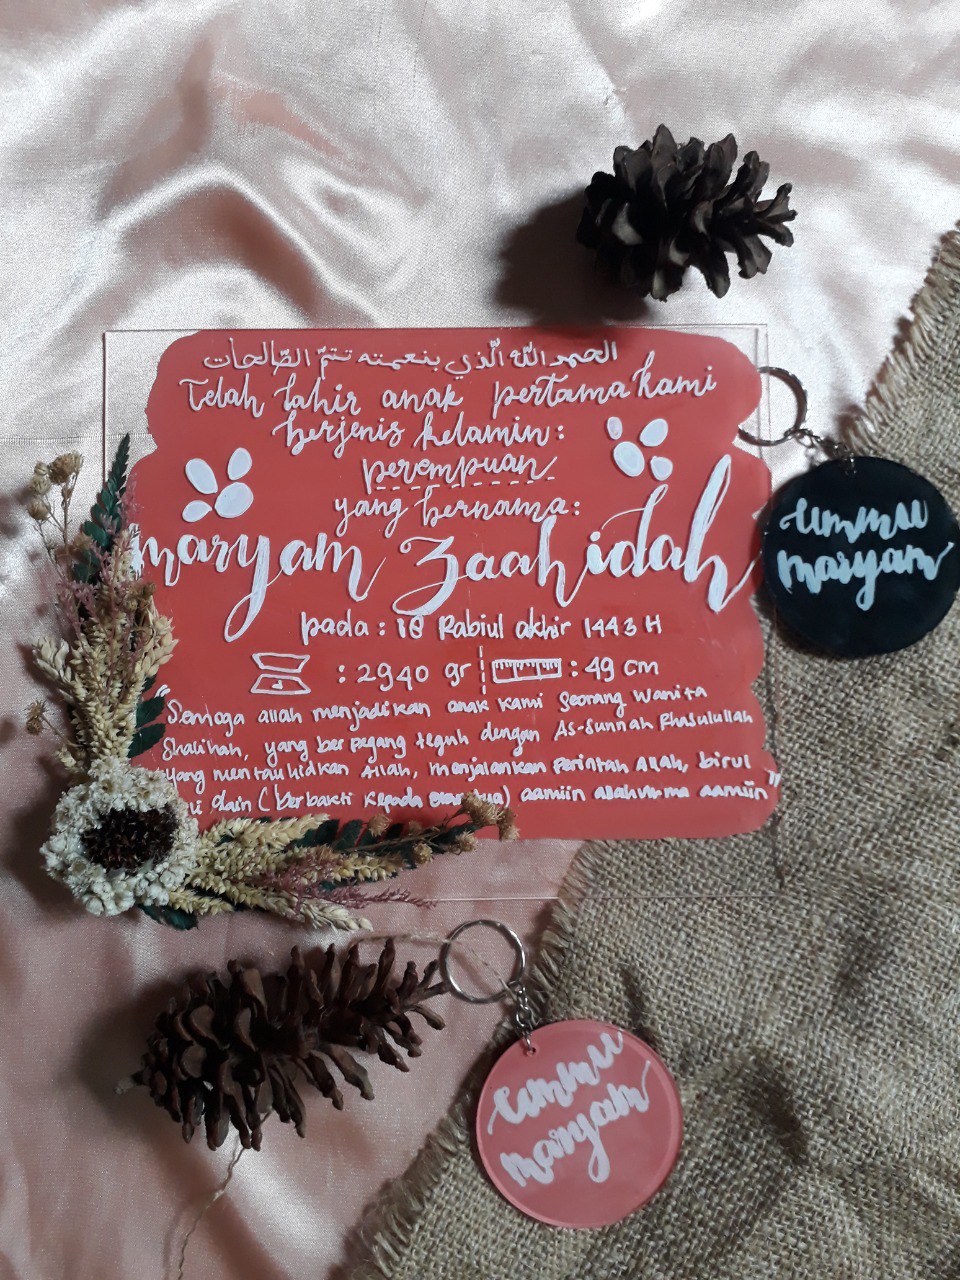 الحمد الله الّذي بنعمته تتمّ الصّالحات
Telah lahir anak pertama kami
berjenis kelamin:
perempuan
yang bernama:
maryam Zaahidah
pada: 18 Rabiul akhir 1443 H
: 2940 gr : 49 cm
"Semoga allah menjadikan anak kami seorang wanita
shalihah, yang berpegang teguh dengan As-sunnah Rhasulullah
yang mentauhidkan Allah, menjalankan perintah Allah, birul
dain (berbakti kepada orang tua) aamiin allahumma aamiin"
ummu
maryam
ummu
maryam